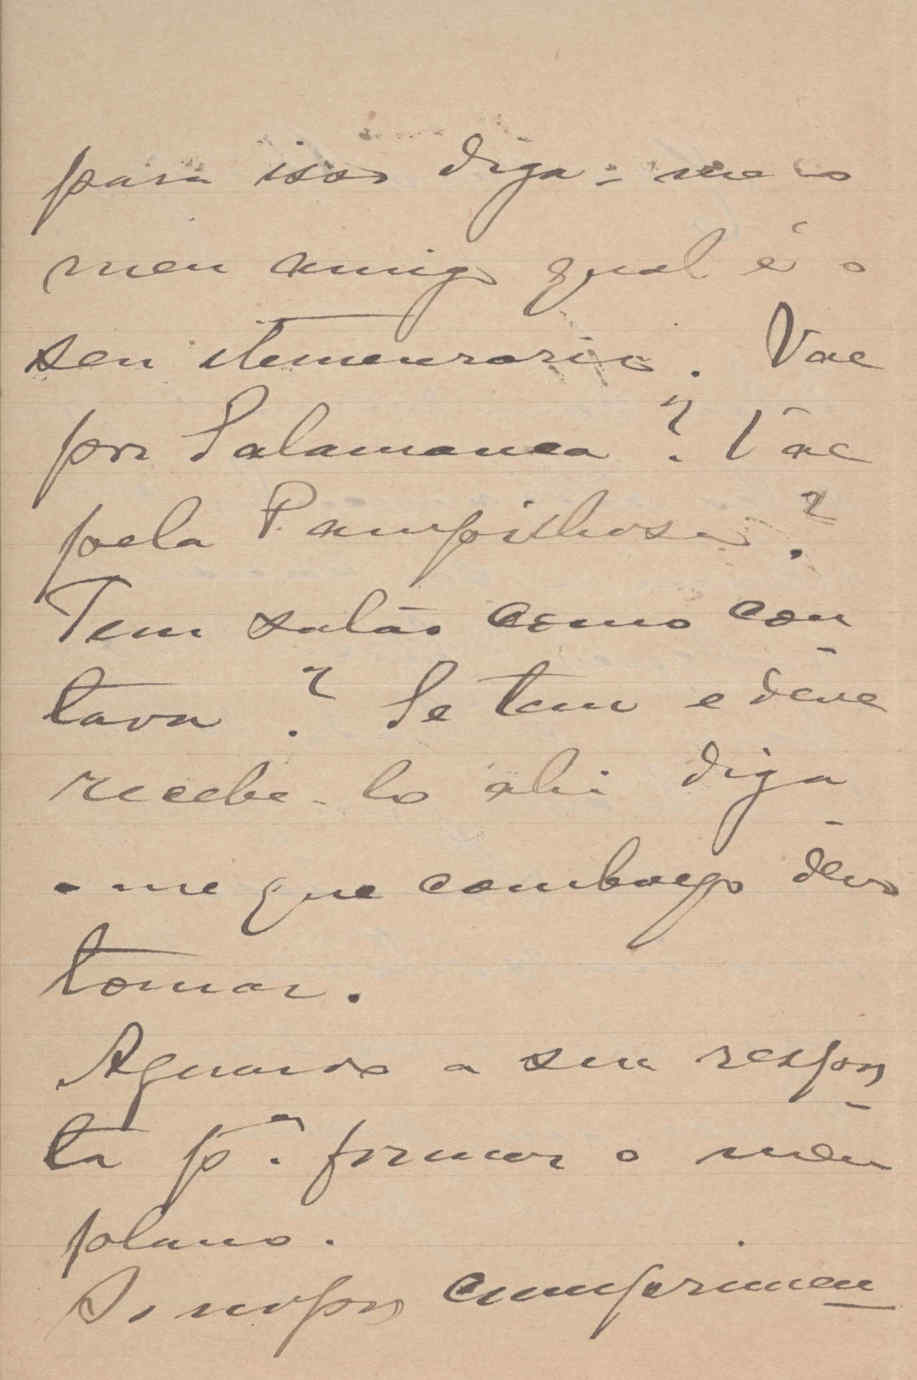 para isso diga-me o
meu amigo qual é o
seu itemenrario. Vae
por Salamanca? Vae
pela Pampilhosa?
Tem salão como con
tava? Se tem e deve
recebe-lo ahi diga
-me que comboyo devo
tomar.
Aguardo a sua respos
ta pª formar o meu
plano.
cumprimen